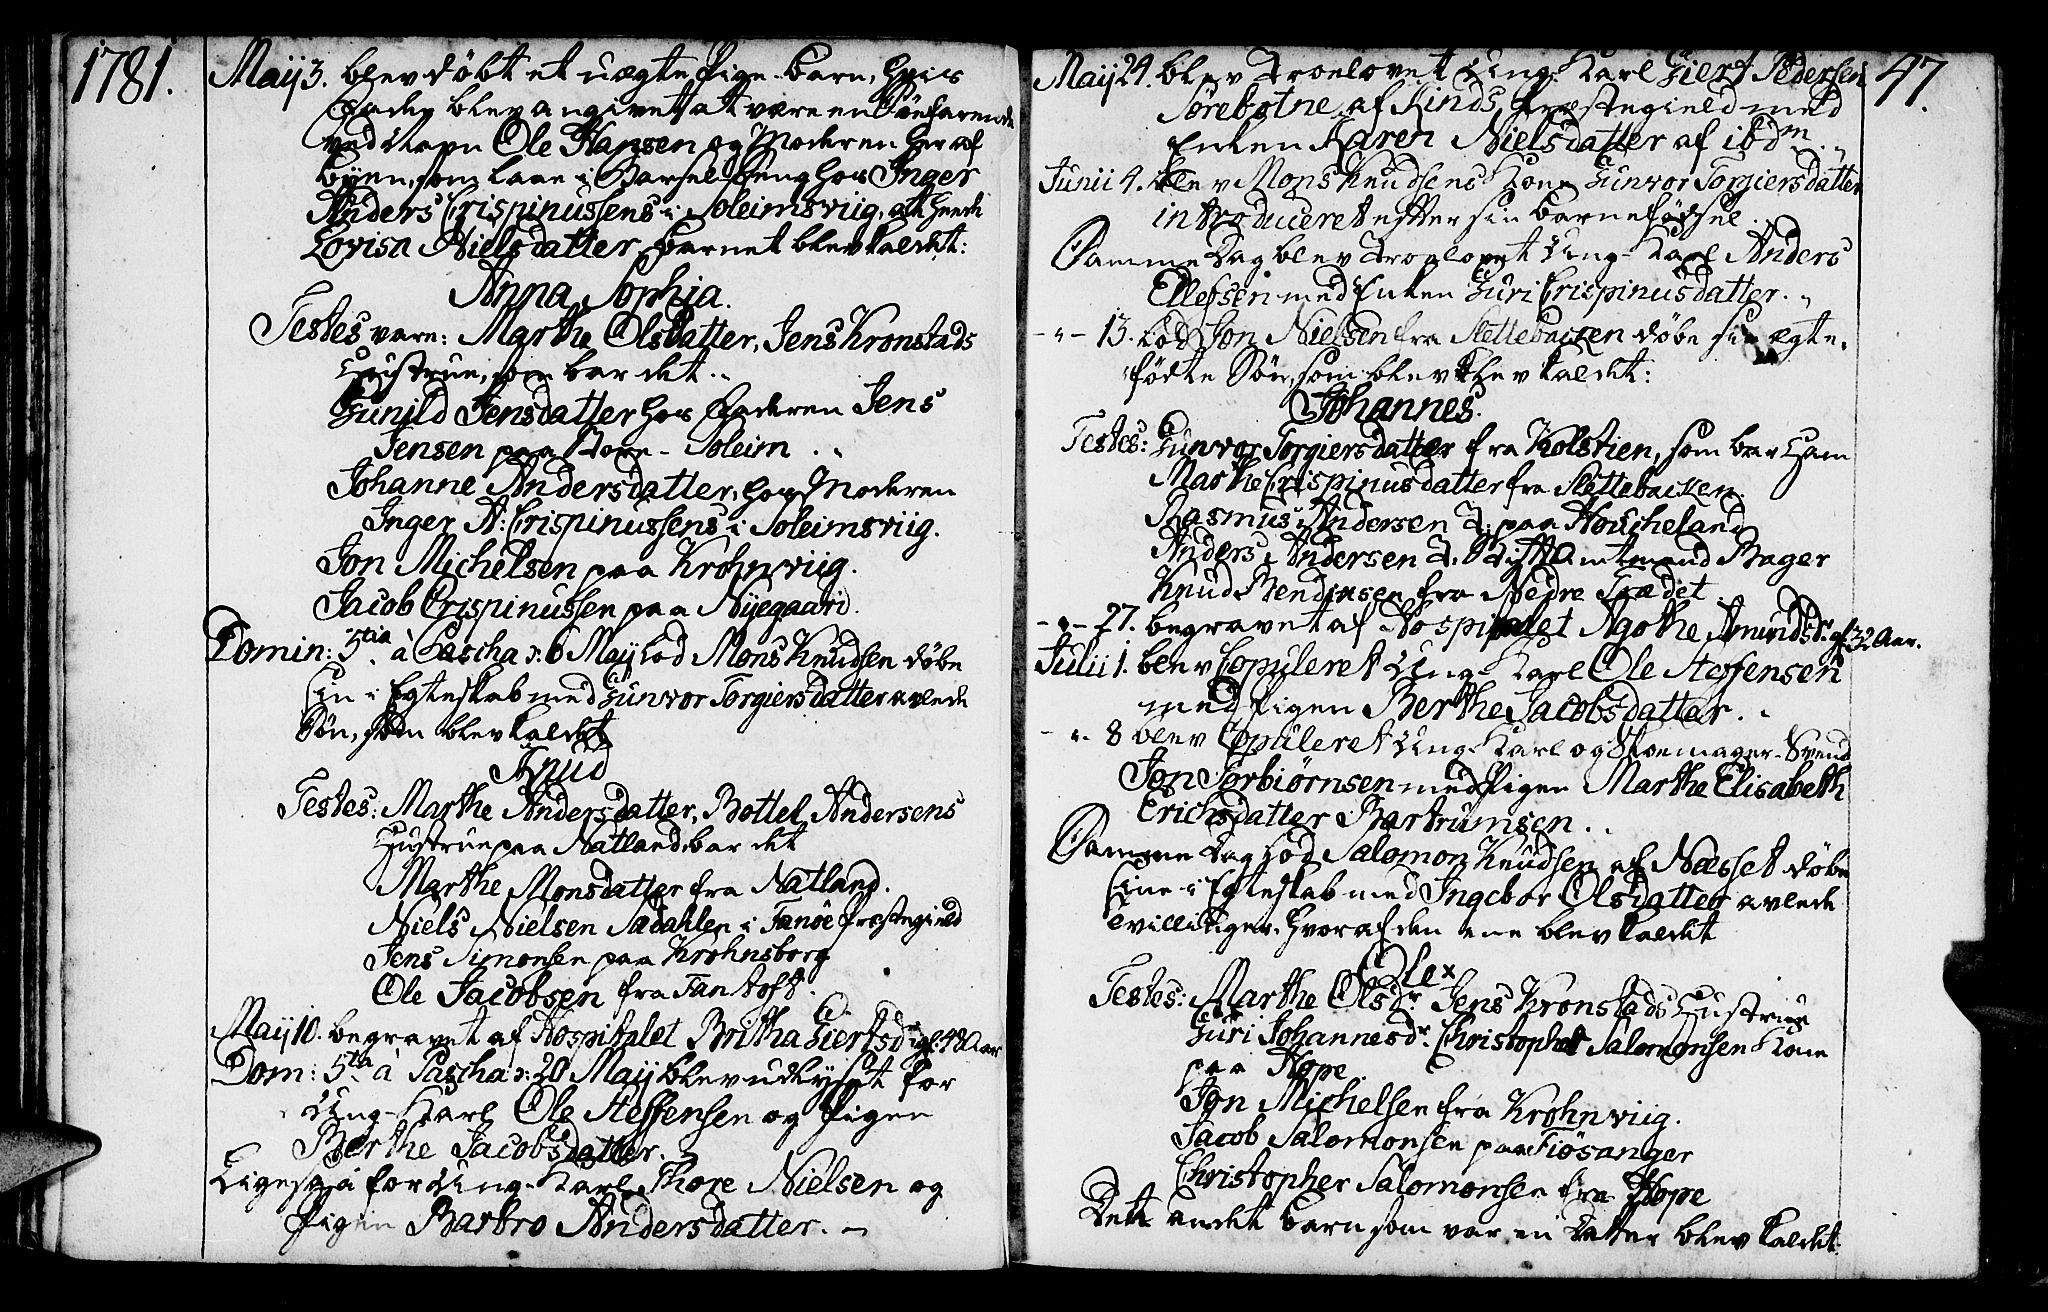 1781.
Maij 3. blev døbt et uægte Pige-Barn, hvis
Fader blev angivet at være en Søefarende
ved Navn Ole Hansen og Moderen her af
Byen, som laae i Barsel-Seng hos Inger
Anders Crispinussens i Soleimsviig, att heede
Lovisa Nielsdatter, barnet blev kaldet:
Anna Sophia.
Testes vare: Marthe Olsdatter, Jens Kronstads
Hustrue, som bar det.
Gunild Jensdatter hos Faderen Jens
Jensen paa Store-Soleim.
Johanne Andersdatter, hos Moderen
Inger A: Crispinussens i Soleimsviig.
Jon Michelsen paa Krohnviig.
Jacob Crispinussen paa Nÿegaard.
Domin: 5tia à Pascha ɔ: 6 Maij lod Mons Knudsen døbe
Sin i Egteskab med Gunvor Torgiersdatter avlede
Søn, som blev kaldet
Knud
Testes: Marthe Andersdatter, Bottel Andersens
Hustrue paa Natland, bar det
Marthe Monsdatter fra Natland.
Niels Nielsen Sædahlen i Fanöe Præstegield
Jens Simonsen paa Krohnsborg
Ole Jacobsen fra Fantoft.
Maij 10. begravet af Hospitalet Britha Giertsd. gl. 48 Aar
Dom: 5ta à Pascha ɔ: 20 Maij blev udlyst for
Ung-Karl Ole Steffensen og Pigen
Berthe Jacobsdatter.
Ligesaa for Ung-Karl Thore Nielsen og
Pigen Barbro Andersdatter.
47.
Maij 24. blev Troelovet Ung-Karl Giert Pedersen
Sørebotne af Kinds Præstegield med
Enken Karen Nielsdatter af ibdm.
Junii 4. blev Mons Knudsens Kone Gunvor Torgiersdatter
introduceret efter sin barnefødsel.
Samme Dag blev Troelovet Ung-Karl Anders
Ellefsen med Enken Guri Crispinusdatter.
-"- 13. lod Jon Nielsen fra Slettebacken døbe sin ægte-
fødte Søn, som blev blev kaldet:
Johannes.
Testes: Gunvor Torgiersdatter fra Kolstien, som bar ham
Marthe Crispinusdatter fra Slettebacken.
Rasmus Andersen T. paa Houcheland
Anders Andersen T. Stifft Amtmand Bager
Knud Bendixsen fra Nedre Sædet.
-"- 27. begravet af Hospitalet Agothe Amundsd. gl. 32 Aar.
Julii 1. blev Copuleret Ung-Karl Ole Steffensen
med Pigen Berthe Jacobsdatter.
-"- 8 blev Copuleret Ung-Karl og Skoemager-Svend
Jon Torbiørnsen med Pigen Marthe Elisabeth
Erichsdatter Bartrumsen.
Samme Dag lod Salomon Knudsen af Næsset døbe
Sine i Egteskab med Ingebor Olsdatter avlede
tvillinger, hvoraf den ene blev kaldet
Ole x
Testes: Marthe Olsdr. Jens Kronstads Hustrue
Guri Johannesdr. Christopher Salomonsen Kone
paa Hope.
Jon Michelsen fra Krohnviig.
Jacob Salomonsen paa Fiösanger
Christopher Salomonsen fra Hope
Dett andet barn som var en Datter blev kaldet